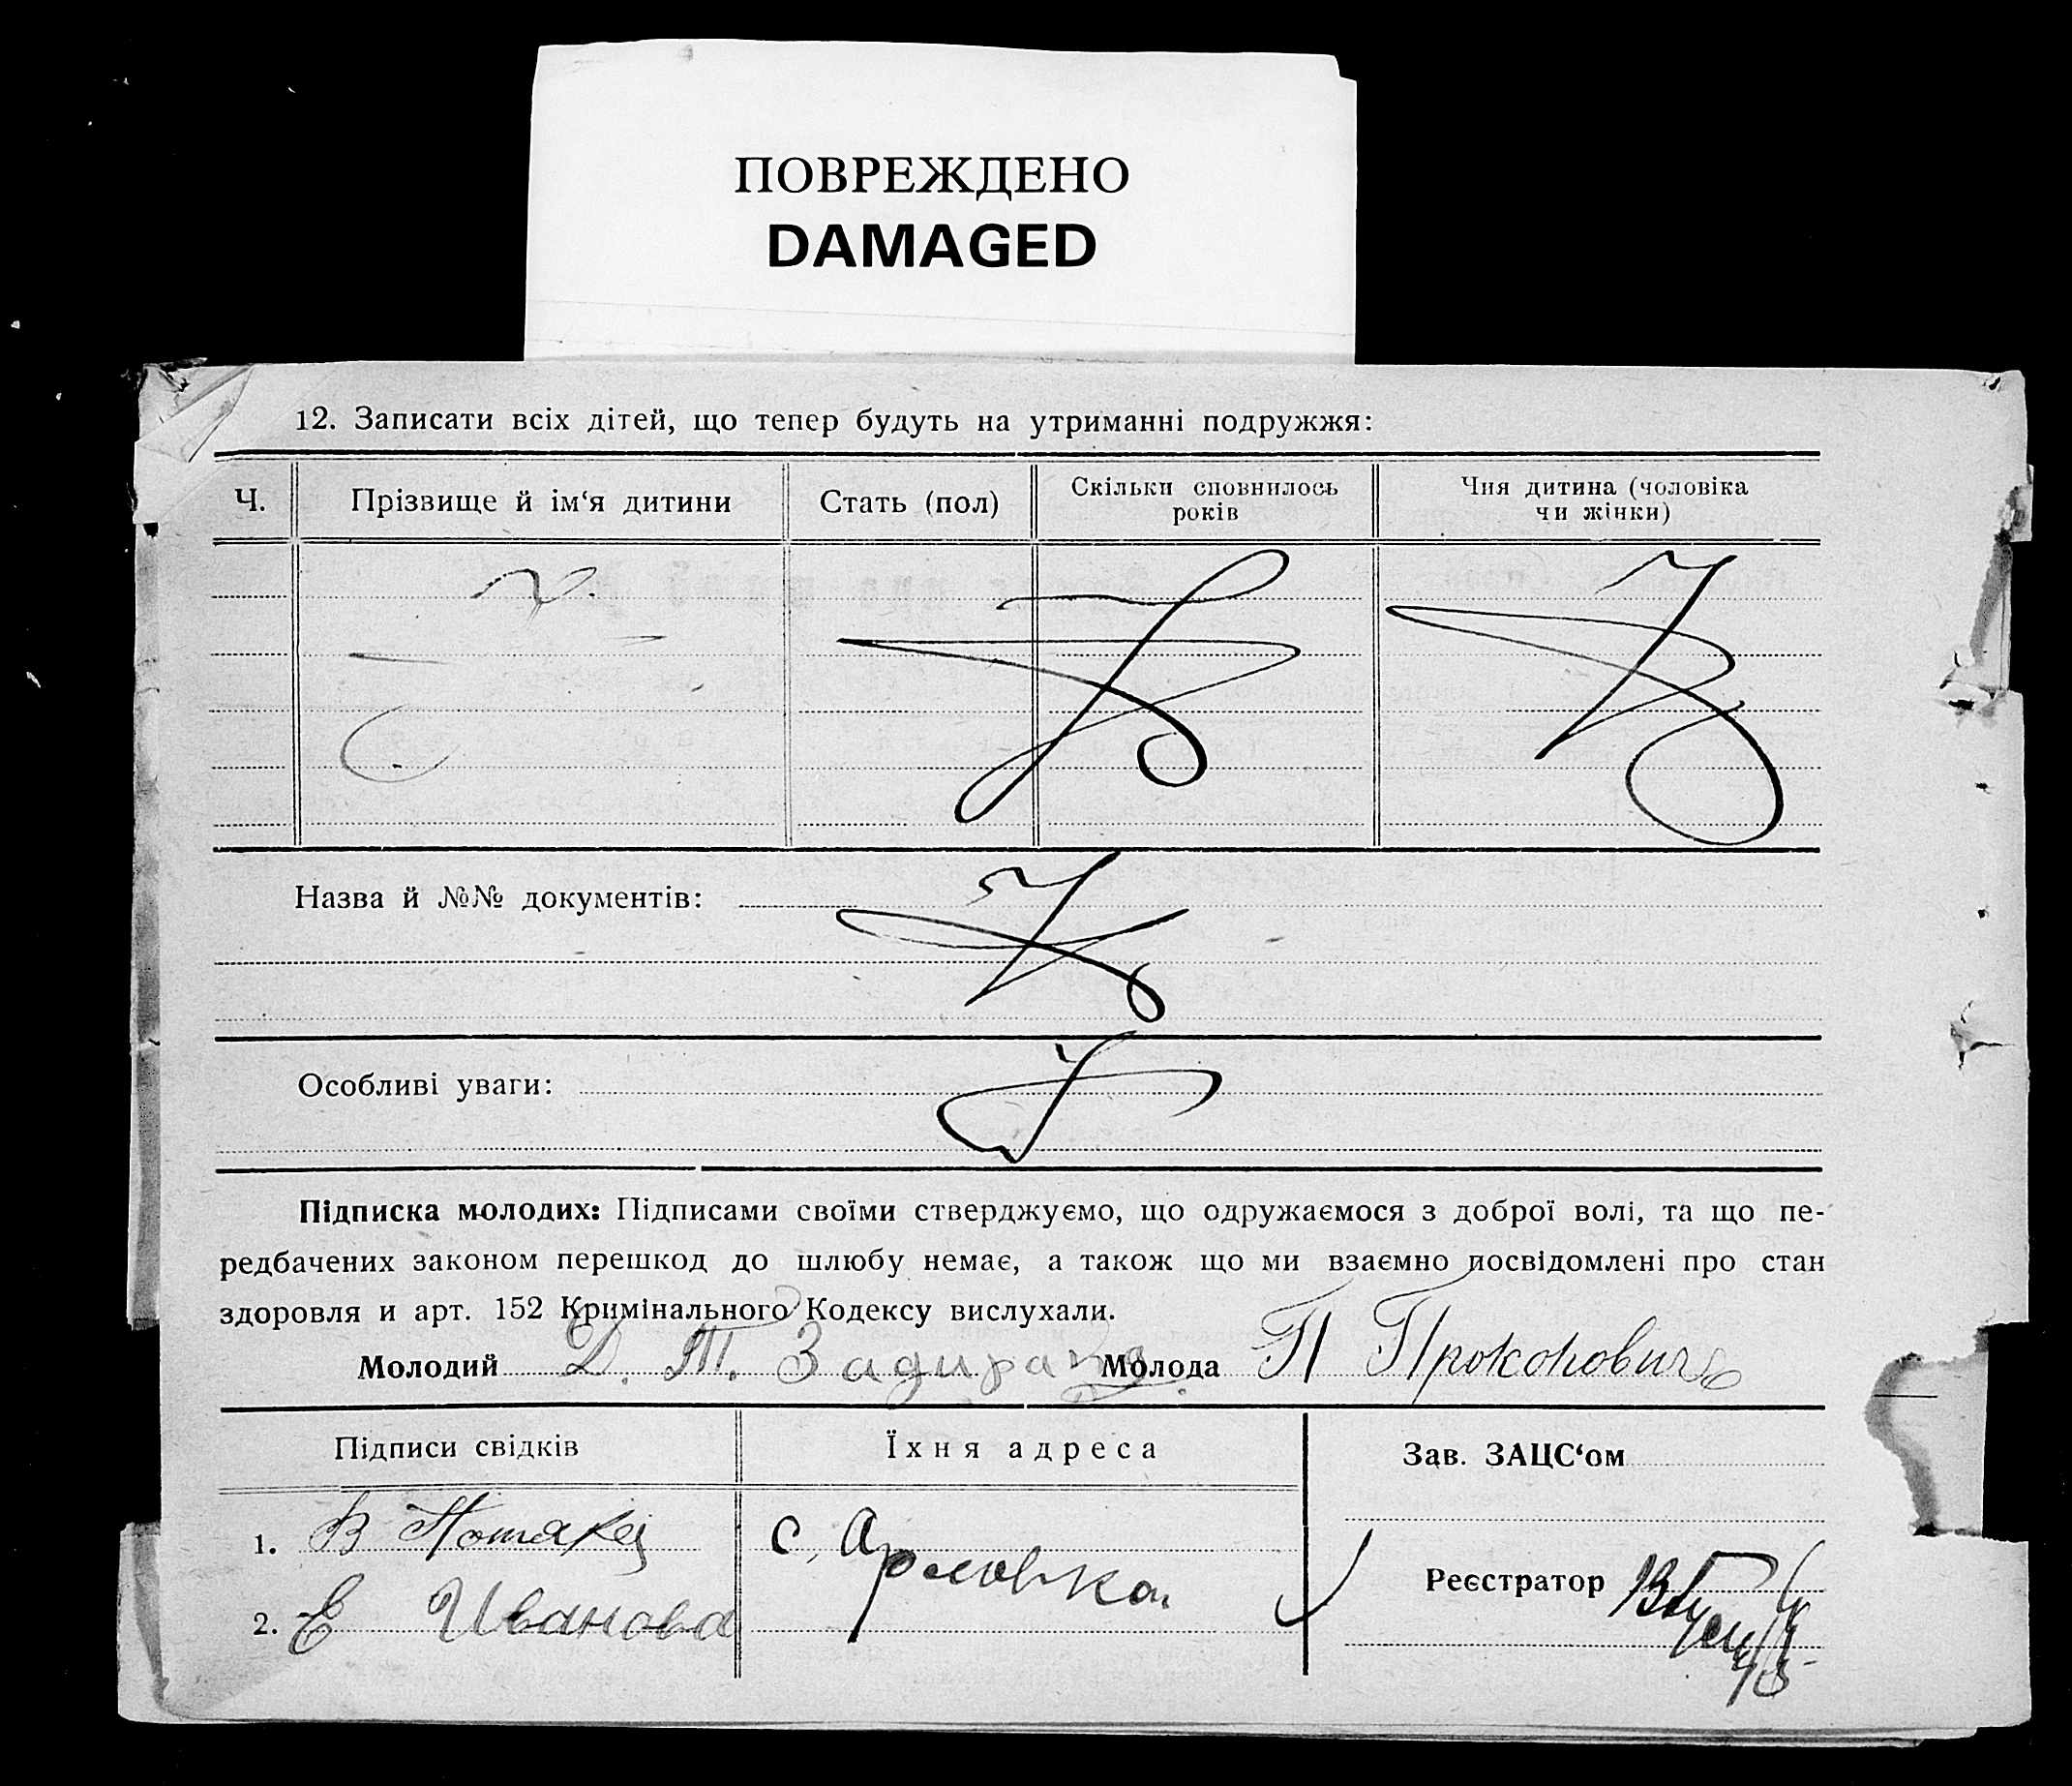 ПОВРЕЖДЕНО
DAMAGED
12. Записати всіх дітей, що тепер будуть на утриманні подружжя:
Ч. Прізвище й ім‘я дитини Стать (пол) Скільки сповнилось років Чия дитина (чоловіка чи жінки)
Назва й №№ документів:
Особливі уваги:
Підписка молодих: Підписами своїми стверджуємо, що одружаємося з доброї волі, та що пе-
редбачених законом перешкод до шлюбу немає, а також що ми взаємно посвідомлені про стан
здоровля и арт. 152 Кримінального Кодексу вислухали.
Молодий Д. Т. Задирака Молода П Прокопович
Підписи свідків Їхня адреса Зав. ЗАЦС‘ом
1. В с.
Реєстратор
2. Е Иванова